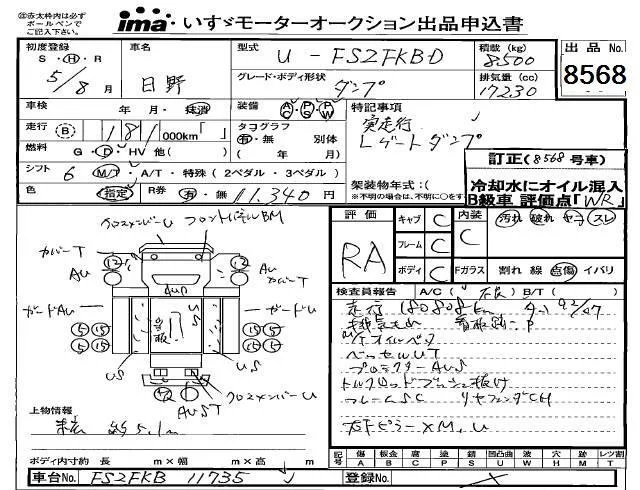 ㊟赤太枠内は必ず
ボールペンで
ご記入下さい。
ima いすゞモーターオークション出品申込書
初度登録 S・H・R 5/8月
車名 日野
型式 U-FS2FKBD
積載(kg) 8500
出品No. 8568
グレード・ボディ形状 ダンプ
排気量(cc) 17230
車検 年・月・抹消
装備 AC PS PW
特記事項
実走行
Lゲートダンプ
走行 B 181 000km
タコグラフ 有・無 別体
( 年 月)
訂正(8568号車)
燃料 G・D・HV 他( )
シフト 6 M/T・A/T・特殊(2ペダル・3ペダル)
架装物年式:(
※不明の場合は、不明に○をす
冷却水にオイル混入
B級車 評価点「WR」
色 指定 R券 有・無 11,340円
評価 RA
キャブ C
フレーム C
ボディ C
内装 C
汚れ 破れ ヤニ スレ
Fガラス 割れ 線 点傷 イバリ
クロスメンバーU フロントパネルBM
カバーT
AU
AU
カバーT
ガードAU
ガードU
US
US
クロスメンバーU
AUST
検査員報告 A/C( B/T( )
走行 180808km
ベッセルUT
プロテクターAUS
フレームSC リヤフェンダCH
左下ピラーXM,U
上物情報
約5.1m
ボディ内寸約 長 m×幅 m×高 m
記号 傷A 板金B 腐C 塗P 錆S 凹凸曲U 波W 穴H 跡M レツ割T
車台No. FS2FKB 11735
登録No.